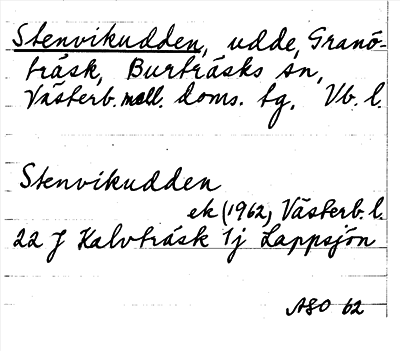 Stenvikudden, udde, Granö-
träsk, Burträsks sn,
Västerb. mell. doms. tg, Vb. l.
Stenvikudden
ek (1962) Västerb. l.
22 J Kalvträsk 1j Lappsjön
ASO 62